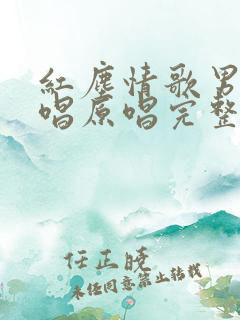 紅塵情歌男
唱原唱完整
任正曉
未经同意禁止转载